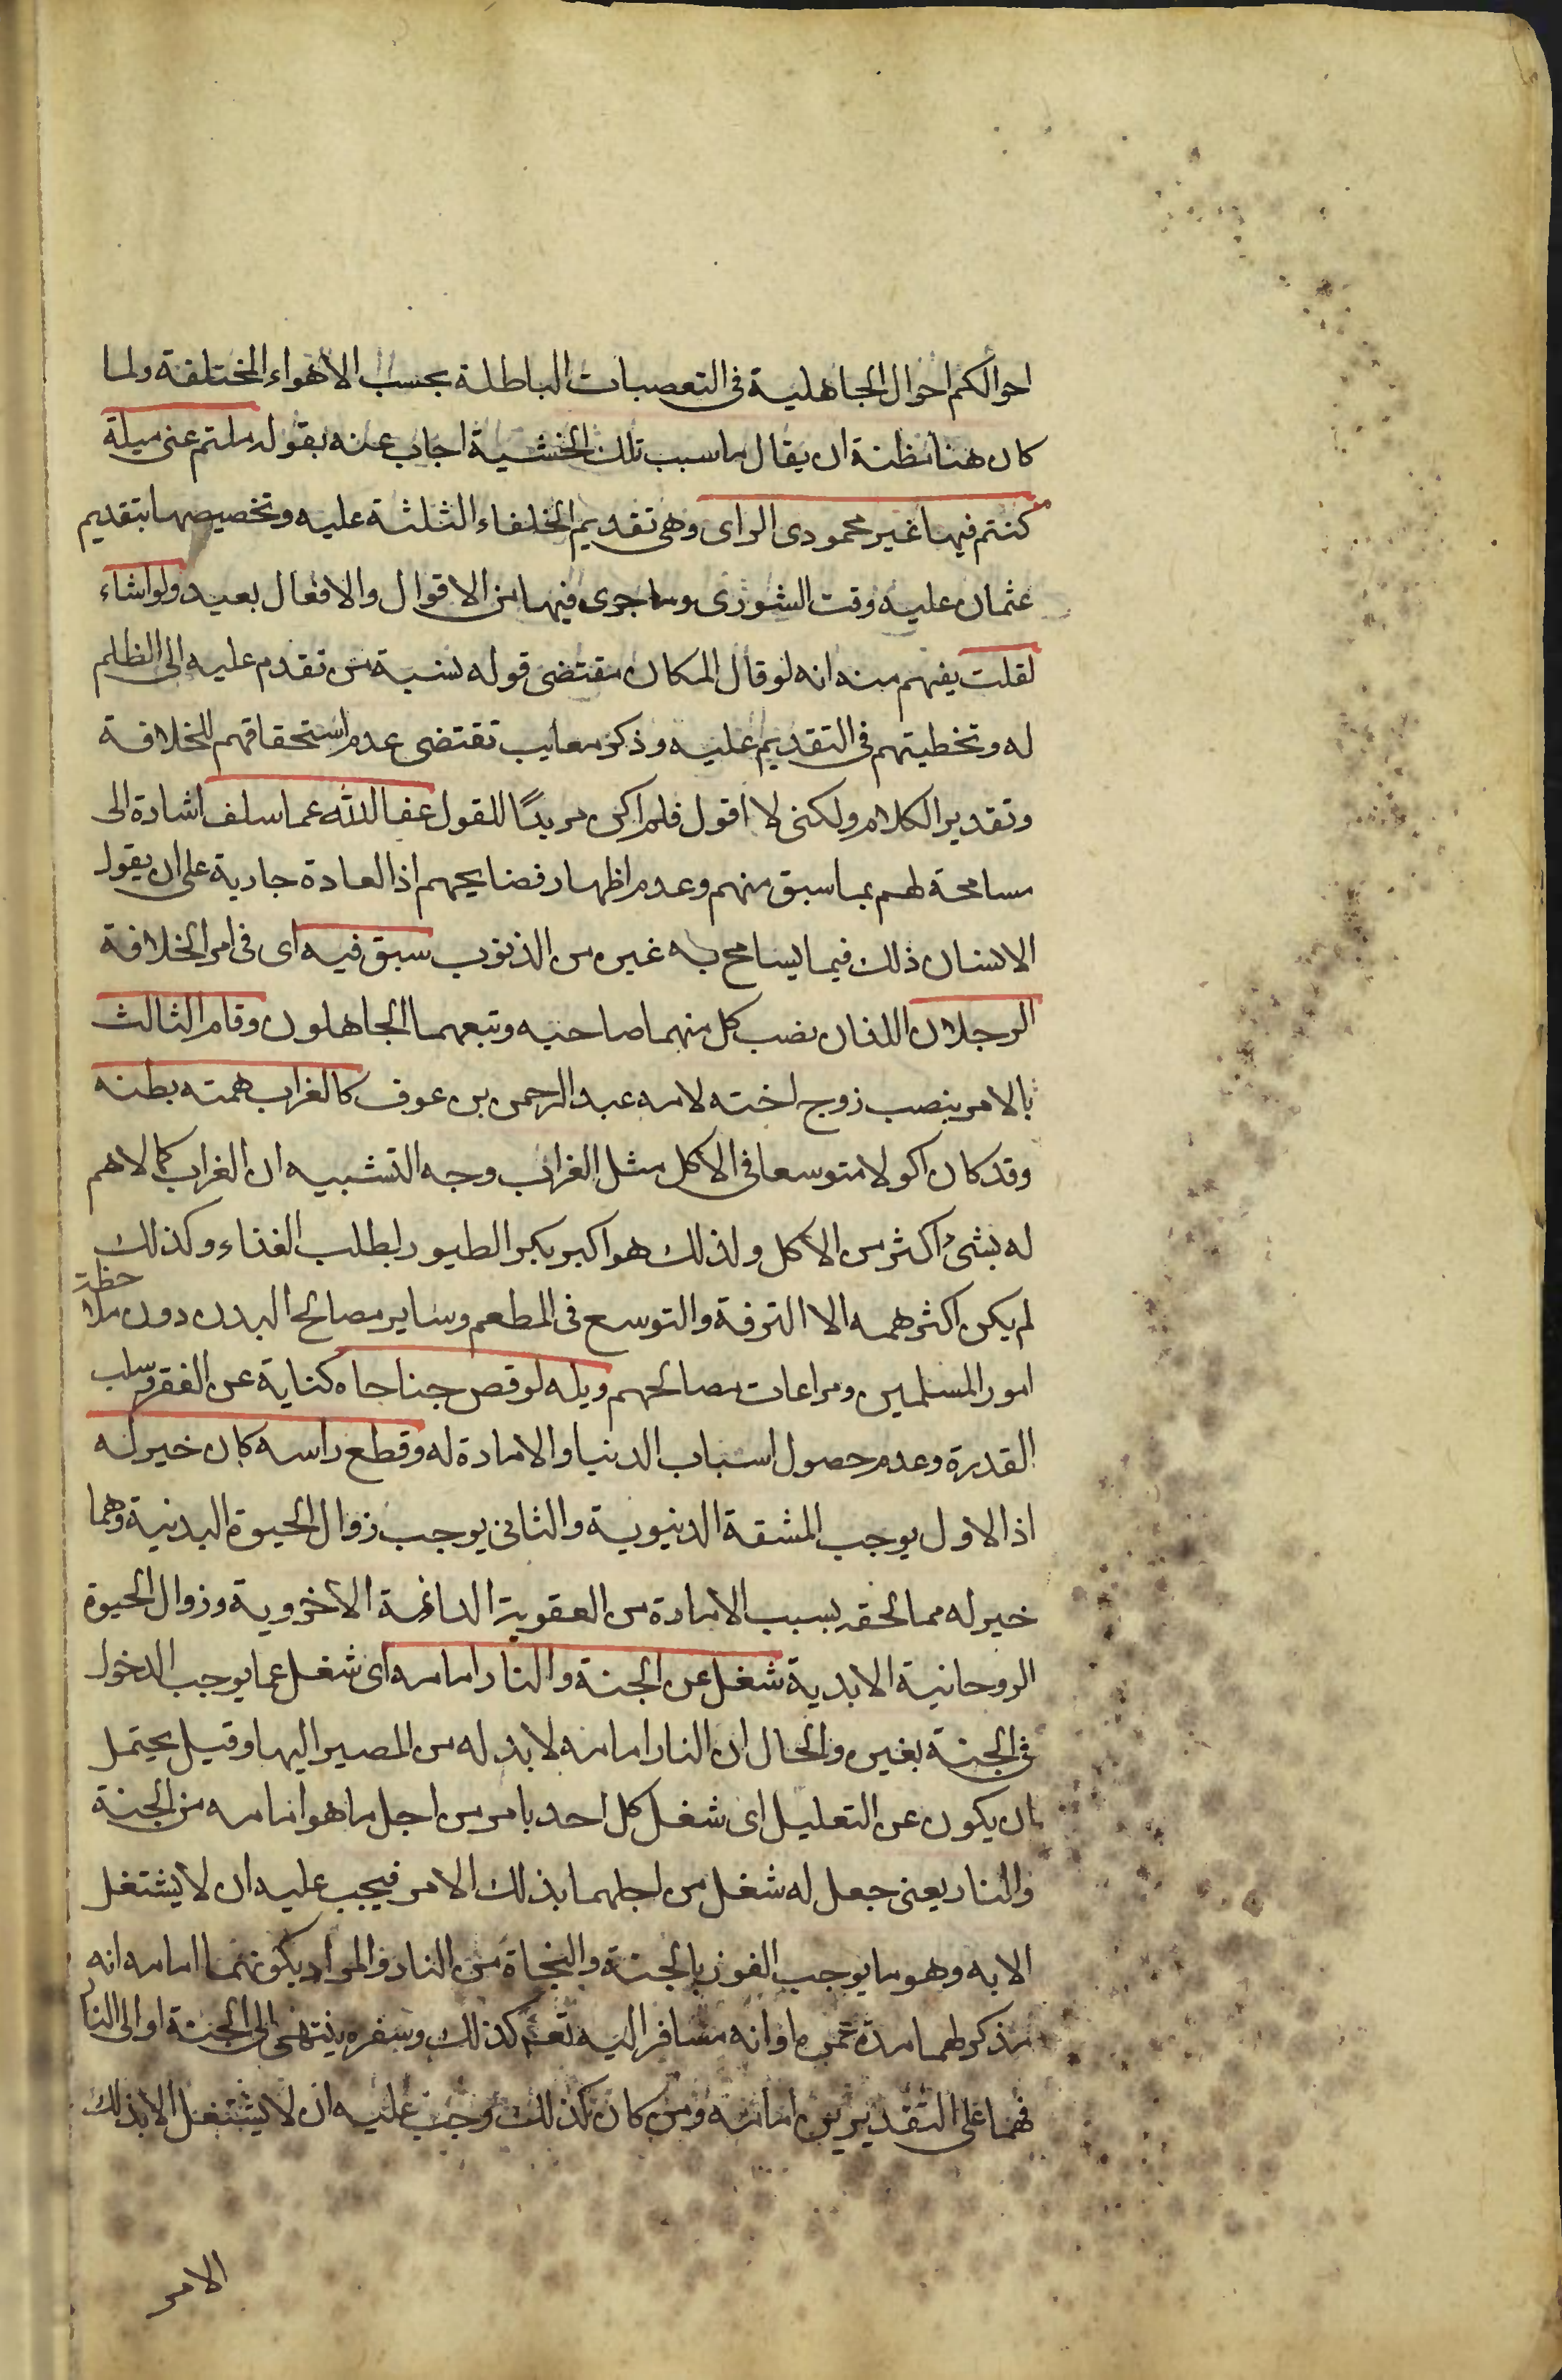 احوالكم احوال الجاهلية فى التعصبات الباطلة بحسب الاهواء المختلفة ولما
كان هنا مظنة ان يقال ما سبب تلك الخشية اجاب عنه بقوله ملتم عنى ميلة
كنتم فيها غير محمودى الراى وهى تقديم الخلفاء الثلثة عليه وتخصيصها بتقديم
عثمان عليه وقت الشورى وما جرى فيها من الاقوال والافعال بعيد ولو اشاء
لقلت يفهم منه انه لو قال لمكان مقتضى قوله نسبة من تقدم عليه الى الظلم
له وتخطيتهم فى التقديم عليه وذكر معايب تقتضى عدم استحقاقهم للخلافة
وتقدير الكلام ولكنى لا اقول فلم اكن مريدًا للقول عفا الله عما سلف اشارة الى
مسامحة لهم بما سبق منهم وعدم اظهار فضايحهم اذ العادة جارية على ان يقول
الانسان ذلك فيما يسامح به غيره من الذنوب سبق فيه اى فى امر الخلافة
الرجلان اللذان نصب كل منهما صاحبه وتبعهما الجاهلون وقام الثالث
بالامر بنصب زوج اخته لامه عبد الرحمن بن عوف كالغراب همته بطنه
وقد كان اكولا متوسعا فى الاكل مثل الغراب وجه التشبيه ان الغراب كما لا هم
له بشئ اكثر من الاكل ولذلك هو اكبر بكبر الطيور لطلب الغذاء وكذلك
لم يكن اكثر همه الا الترفة والتوسع فى المطعم وساير مصالح البدن دون ملاحظة
امور المسلمين ومراعات مصالحهم ويله لو قص جناحاه كناية عن الفقر وسلب
القدرة وعدم حصول اسباب الدنيا والامارة له وقطع راسه كان خير له
اذ الاول يوجب المشقة الدنيوية والثانى يوجب زوال الحيوة البدنية وهما
خير له مما لحقه بسبب الامارة من العقوبة الدائمة الاخروية وزوال الحيوة
الروحانية الابدية شغل عن الجنة والنار امامه اى شغل عما يوجب الدخول
فى الجنة بغيره والحال ان النار امامه لا بد له من المصير اليها وقيل يحتمل
ان يكون عن التعليل اى شغل كل احد بامر من اجل ما هو امامه من الجنة
والنار يعنى جعل له شغل من اجلهما بذلك الامر فيجب عليه ان لا يشتغل
الا به وهو ما يوجب الفوز بالجنة والنجاة من النار والمراد بكونهما امامه انه
مذكر لهما مدة عمره او انه مسافر اليه كذلك وسفره ينتهى الى الجنة او الى النار
فهما على التقديرين امامه ومن كان كذلك وجب عليه ان لا يشتغل الا بذلك
الامر